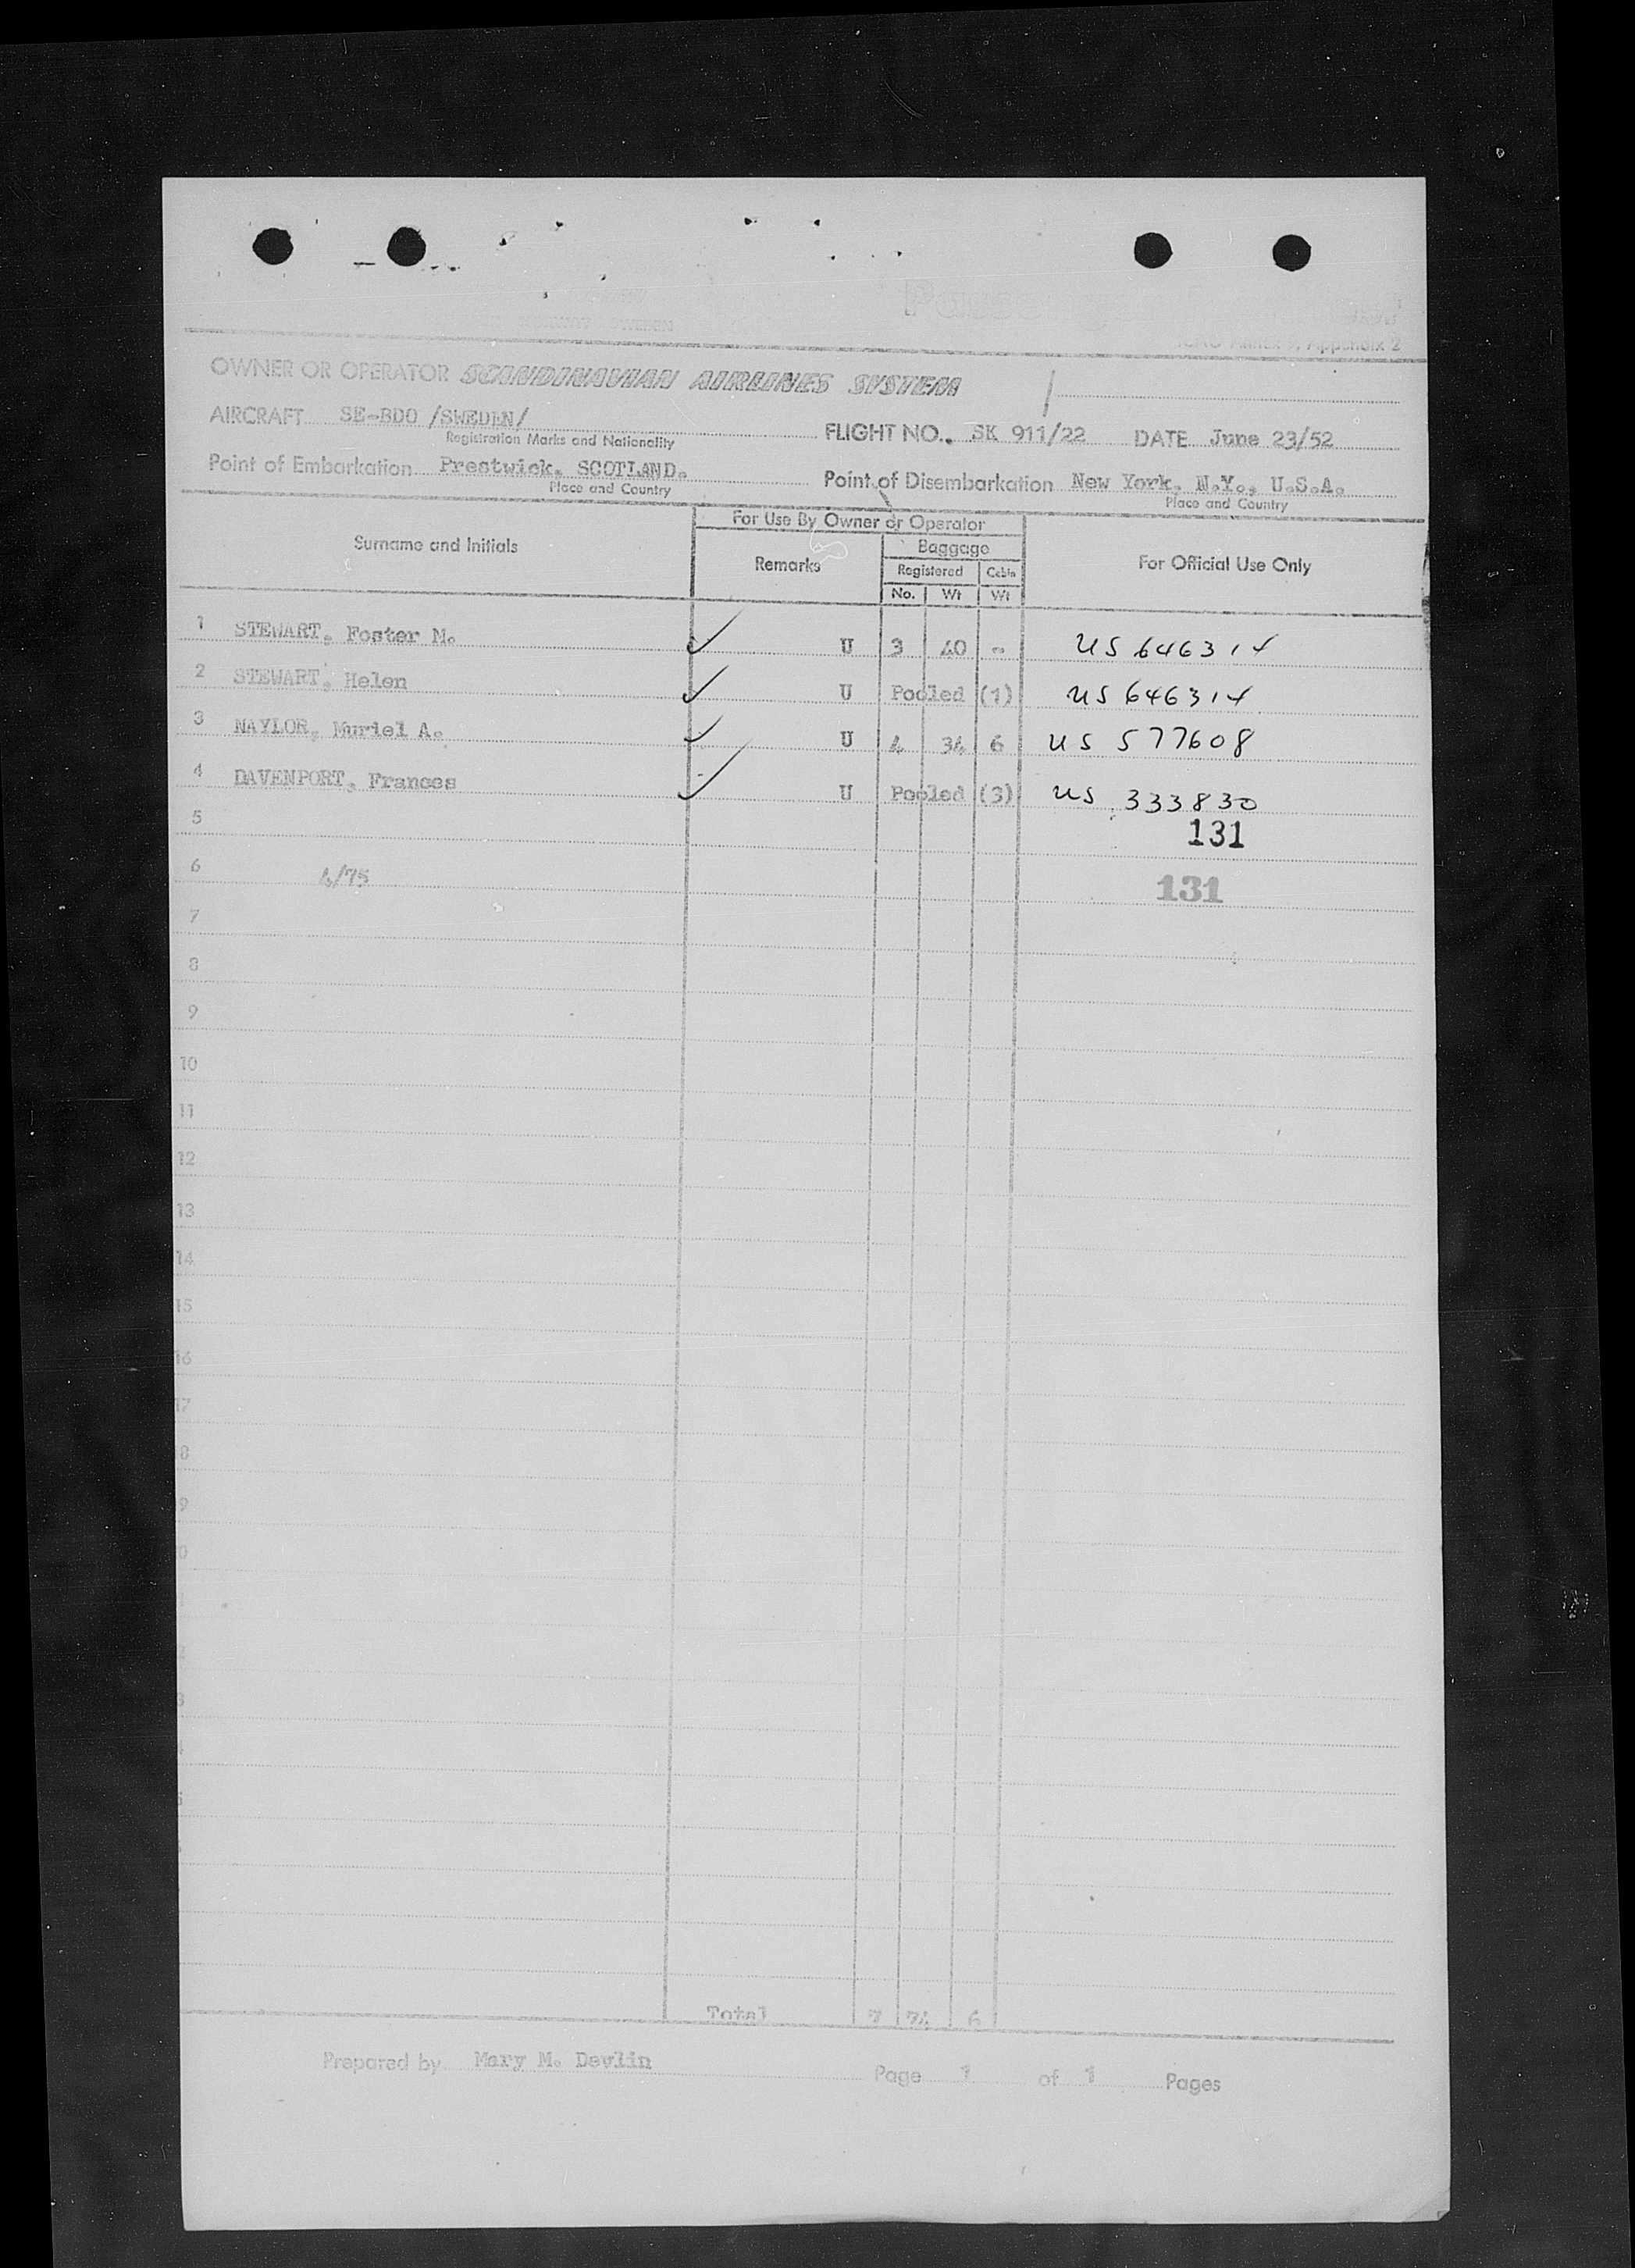 Passenger
NORWAY SWEDEN
ICAO Annex 9, Appendix 2
OWNER OR OPERATOR SCANDINAVIAN AIRLINES SYSTEM
AIRCRAFT SE-BDO /SWEDEN/
Registration Marks and Nationality
FLIGHT NO. SK 911/22 DATE June 23/52
Point of Embarkation Prestwick, SCOTLAND.
Place and Country
Point of Disembarkation New York, N.Y., U.S.A.
Place and Country
For Use By Owner or Operator
Surname and Initials Remarks Baggage For Official Use Only
Registered Cabin
No. Wt Wt
1 STEWART, Foster M. ✓ U 3 40 - US 646314
2 STEWART, Helen ✓ U Pooled (1) US 646314
3 NAYLOR, Muriel A. ✓ U 4 34 6 US 577608
4 DAVENPORT, Frances ✓ U Pooled (3) US 333830
5 131
6 4/75 131
7
8
9
10
11
12
13
14
15
16
17
8
9
0
3
Total 7 74 6
Prepared by Mary M. Devlin Page 1 of 1 Pages